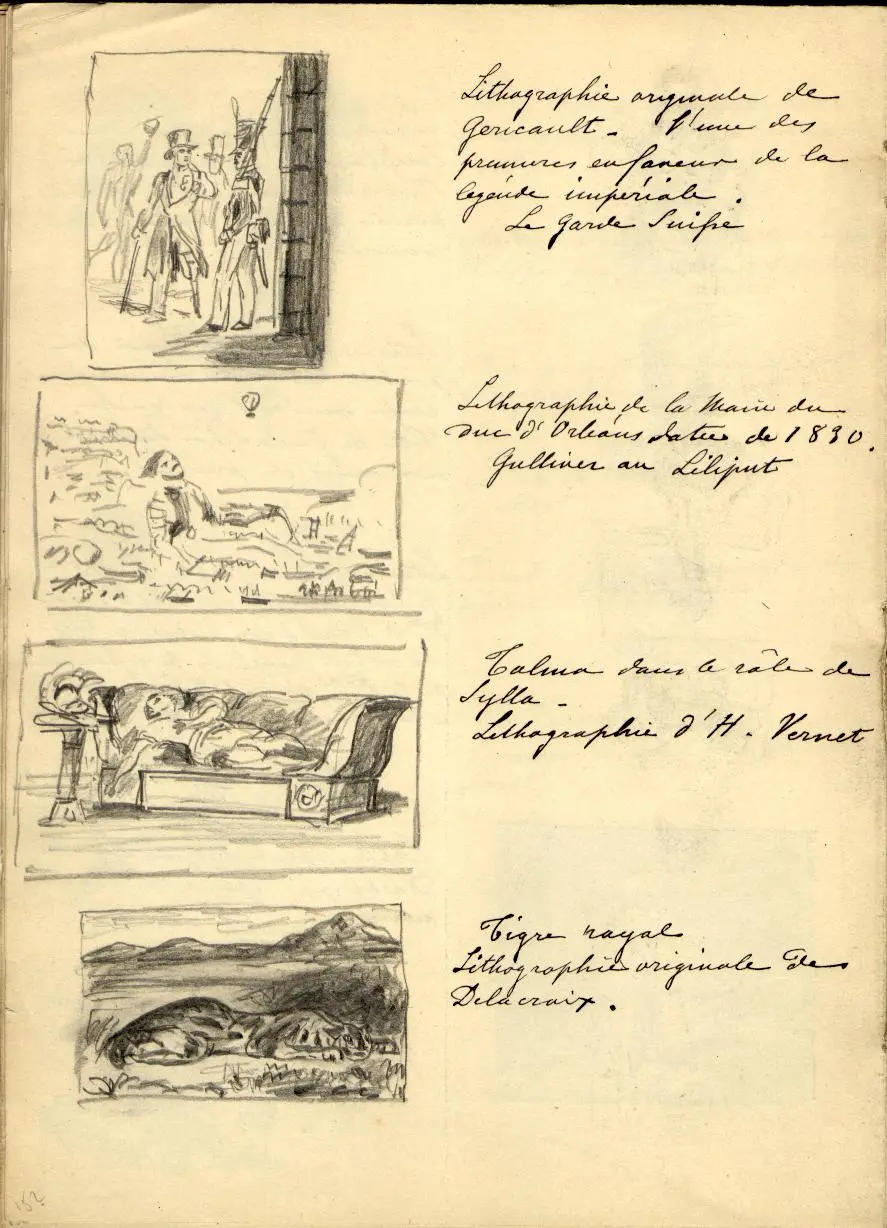 Lithographie originale de
Gericault - l'une des
premieres en faveur de la
legende impériale.
Le Garde Suisse
Lithographie de la Main du
duc d'Orleans datée de 1830.
Gulliver au Liliput
Talma dans le rôle de
Sylla -
Lithographie d'H. Vernet
Tigre royal
Lithographie originale de
Delacroix.
152